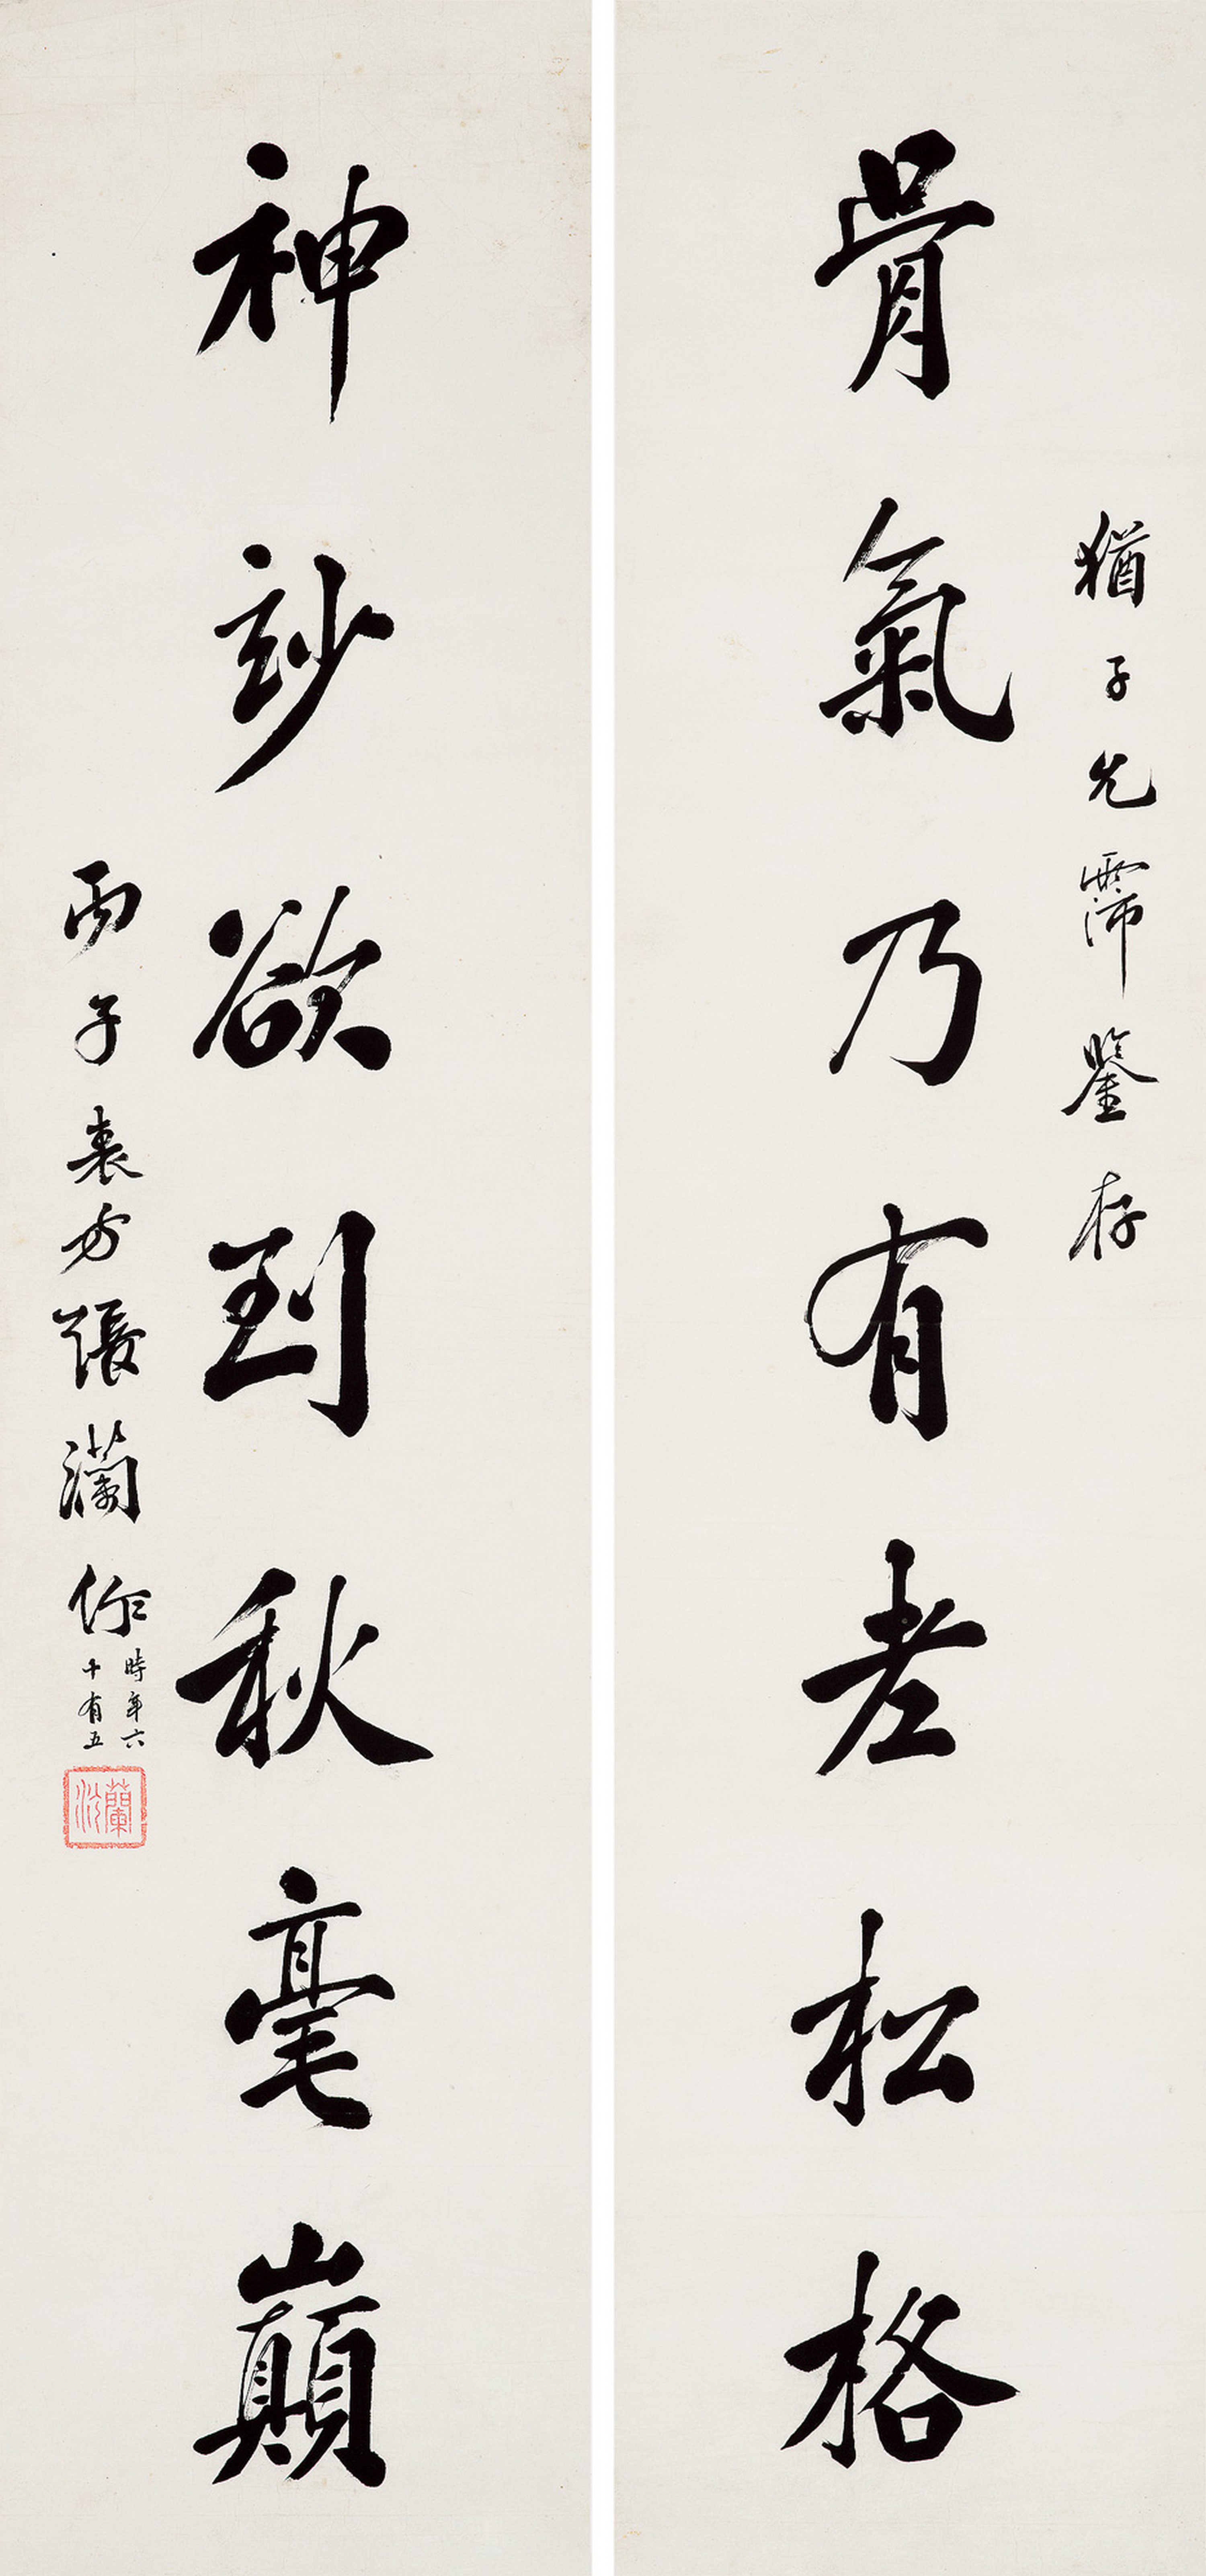 猶子允霈鑒存
骨氣乃有老松格
神玅欲到秋毫巔
丙子表方張瀾作
時年六
十有五
瀾